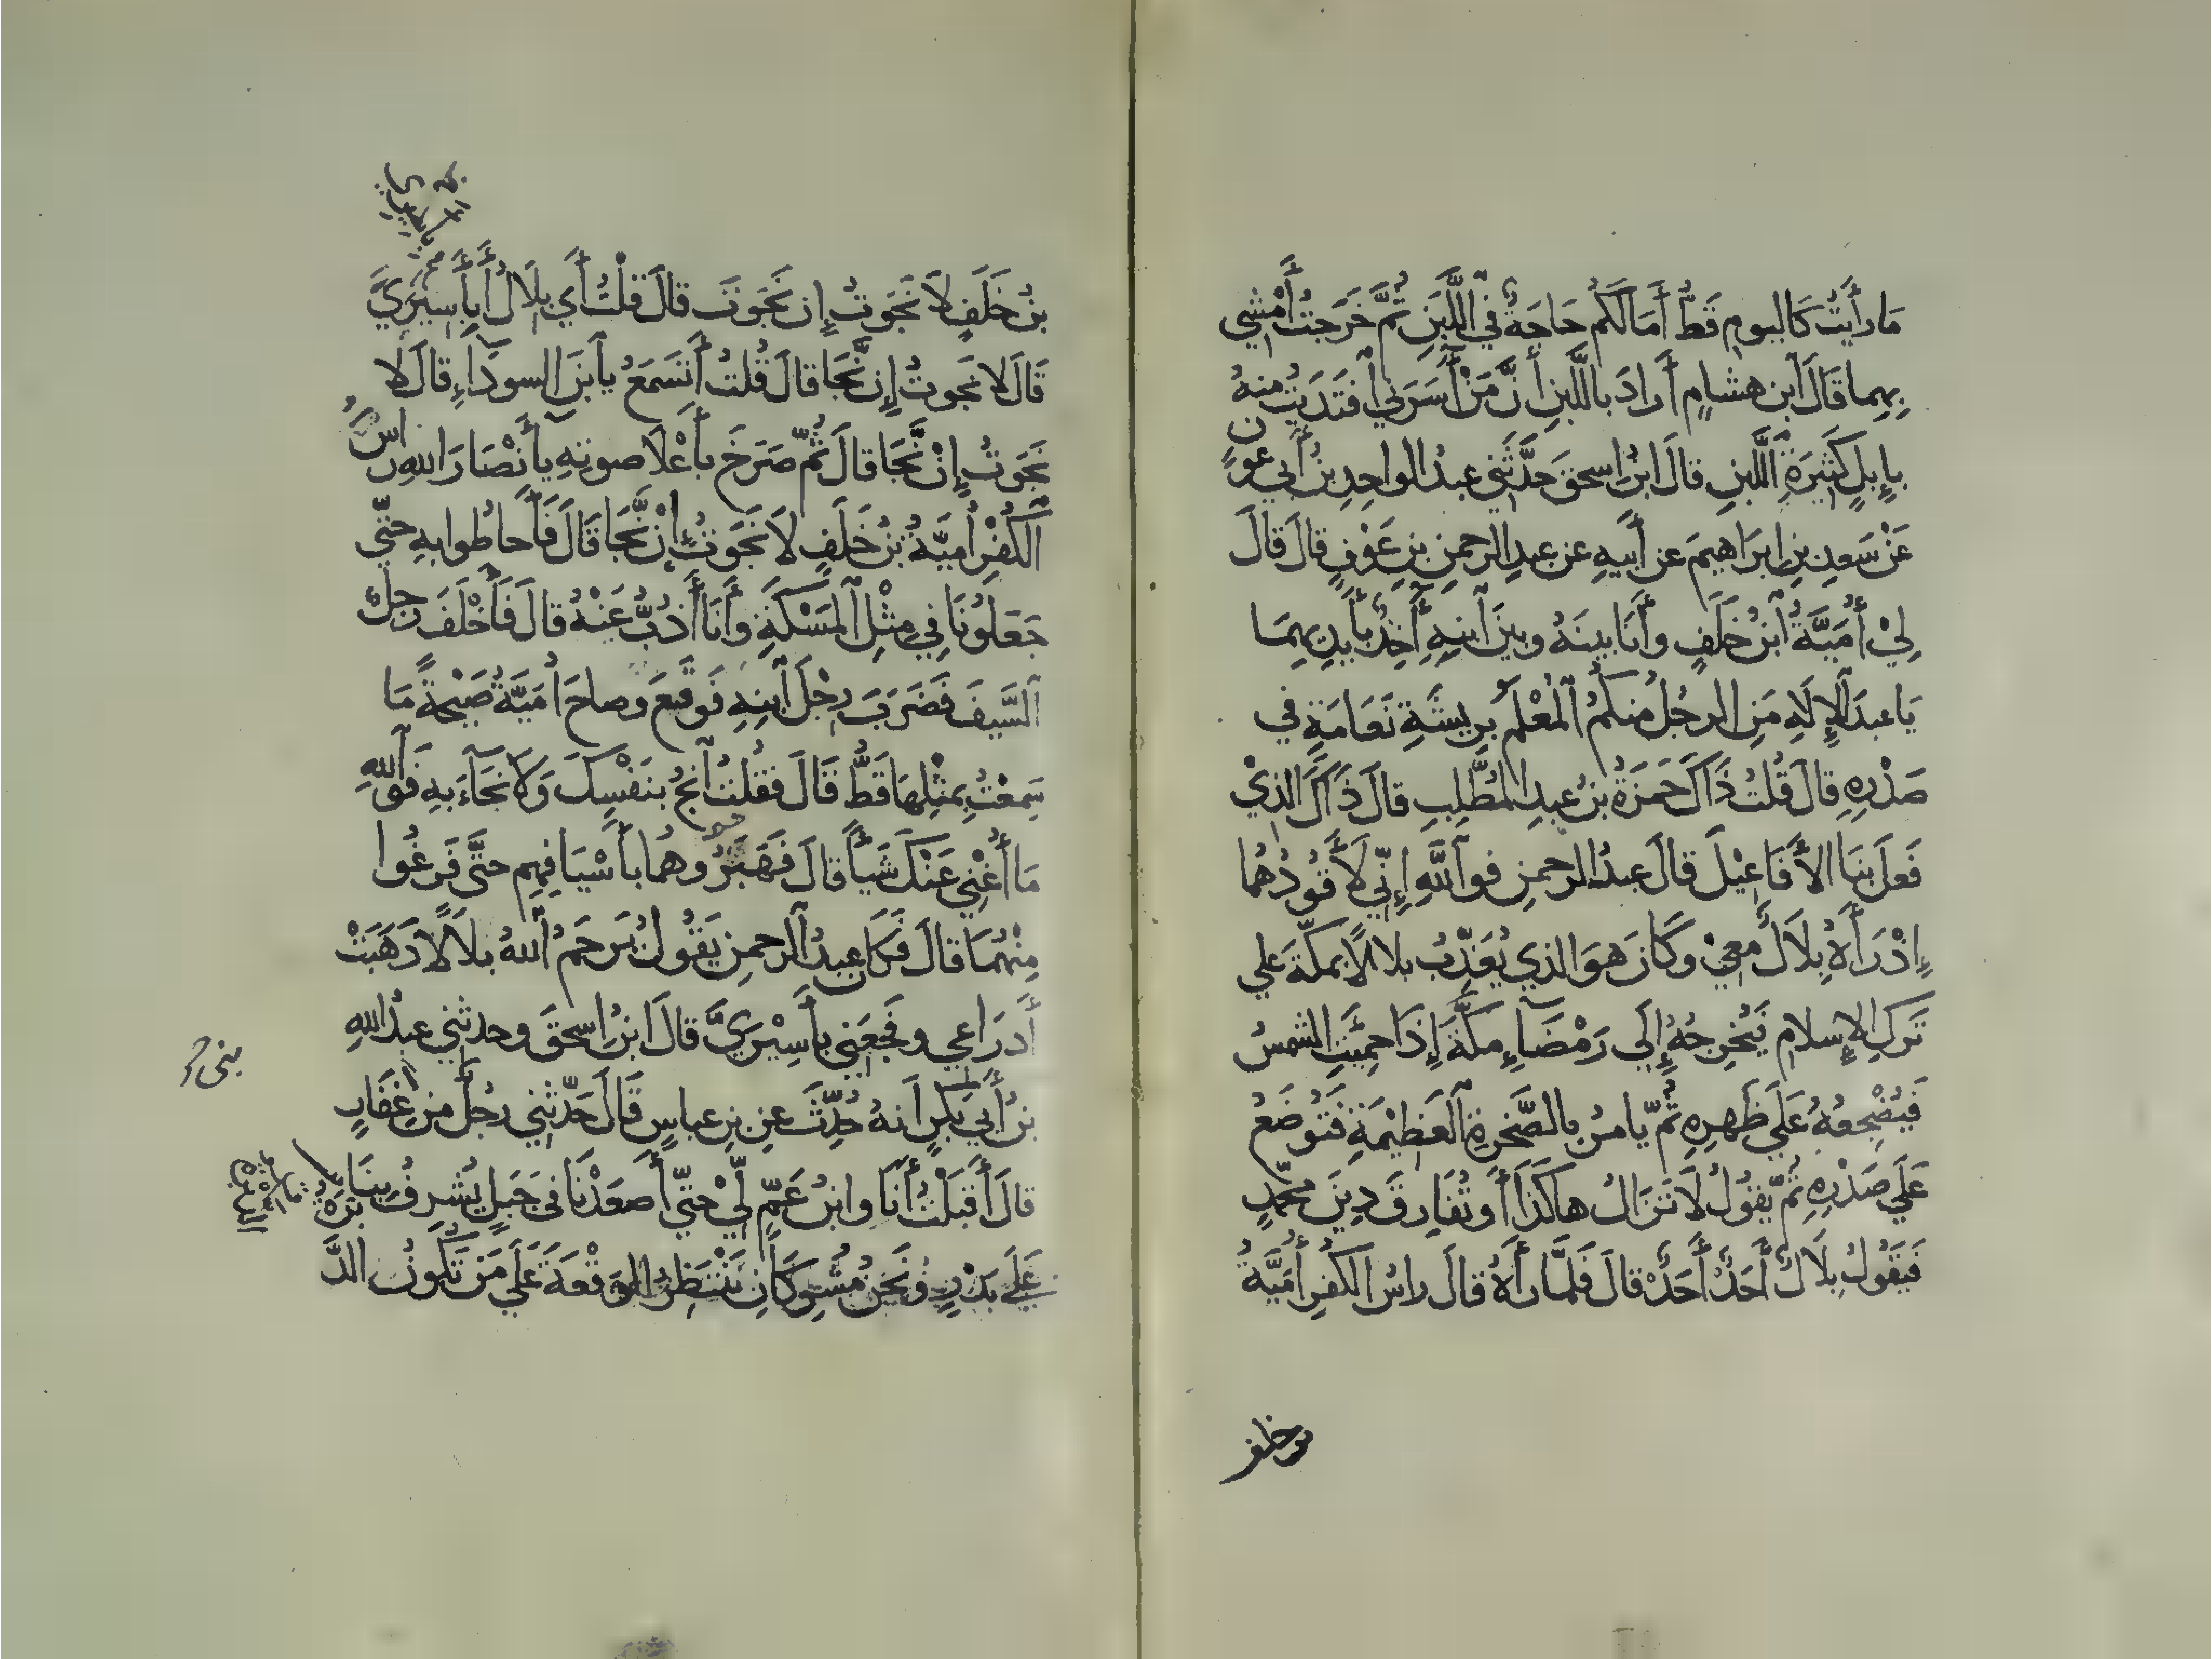 مَا رَأَيْتُ كَاليومِ قَطُّ أَمَالَكُم حَاجَةٌ فِي اللَّبَنِ ثُمَّ خَرَجتُ أَمْشِي
بِهِما قَالَ ابن هشامٍ أَرادَ باللَّبنِ أَنَّ مَنْ أَسَرَنِي افتَدَيتُ منهُ
بإِبلٍ كَثِيَرةِ اللَّبنِ قالَ ابنُ اسحقَ حَدَّثَنِي عبدُ الواحِدِ بنُ أَبي عونٍ
عَنْ سَعدِ بنِ ابرَاهيمَ عن أَبيهِ عن عبدِ الرحمنِ بنِ عَوْفٍ قالَ قالَ
لِيْ أُمَيَّةُ ابنُ خَلَفٍ وأَنَا بينَهُ وبينَ ابنهِ آخِذٌ بأَيدِيهِمَا
يَا عبدَ الإِلَهِ مَنِ الرجُلُ مِنكُمُ المُعْلَمُ بِرِيشَةِ نَعَامَةٍ في
صَدْرِهِ قالَ قُلتُ ذَاكَ حَمزَةُ بنُ عبدِ المُطَّلِبِ قالَ ذَاكَ الذيْ
فَعَلَ بنَا الأَفَاعِيْلَ قالَ عبدُ الرحمنِ فو اللَّهِ إِنّي لَأَقُودُهُما
إِذْ رَأَهُ بِلَالٌ معِيْ وَكَانَ هوَ الذي يُعَذِّبُ بلالاً بمكّةَ علي
تَركِ الإِسلامِ يُخرِجهُ إِلَى رَمْضَآءِ مكَّةَ إِذَا حَمِيَتِ الشمسُ
فَيُضْجِعُهُ عَلَي ظَهرِهِ ثُمّ يَامرُ بِالصَّخرةِ العَظِيْمَةِ فَتُوضَعُ
عَلَي صَدْرِهِ ثُمّ يَقُولُ لَا تَزَالُ هاكَذَا أَو تُفَارِقَ دِينَ مُحَمّدٍ
فَيَقُولُ بِلَالٌ أَحَدٌ أَحَدٌ قالَ فَلَمَّا رَأَهُ قالَ راسُ الكُفرِ أُمَيَّةُ
بنُ خَلَفٍ لَا نَجَوتُ إِن نَجَوتَ قالَ قلتُ أَي بلَالُ أَبِأَسِيْرَيَّ
قَالَ لا نجوتُ إِن نَّجَا قالَ قُلتُ أَتَسمَعُ يآبنَ السودَآءِ قالَ لا
نَجَوتُ إِنْ نَّجَا قالَ ثُمّ صَرَخَ بأَعْلَا صوتهِ يآ أَنْصَارَ اللهِ رَاسُ
الكُفْرِ أُميَّةُ بنُ خَلَفٍ لَا نَجَوتُ إِنْ نَّجَا قَالَ فَأَحاطُوا بهِ حتّي
جَعَلُوْنَا فِي مِثْلِ المَسْكَةِ وأَنَا أَذُبُّ عَنْهُ قالَ فَأَخْلَفَ رجلٌ
السَّيفَ فَضَرَبَ رِجْلَ ابنِهِ فَوَقَعَ وصاحَ أُمَيَّةُ صَيْحَةً مَا
سَمِعتُ بمثْلِها قَطُّ قَالَ فقُلتُ انجُ بنَفْسِكَ وَلَا نجَآءَ بهِ فَوَاللهِ
مَا أُغْنِي عَنْكَ شَيْأً قالَ فَهَبَرُوهما بأَسْيَافِهِم حتَّى فَرَغُوا
مِنْهُمَا قالَ فكانَ عبدُ الرحمنِ يَقُولُ يَرحَمُ اللهُ بلَالًا ذَهَبَتْ
أَدرَاعِي وفَجَعَنِي بأَسِيْرَيَّ قالَ ابنُ اسحقَ وحدثني عبدُ اللهِ
بنُ أَبي بَكرٍ انهُ حُدِّثَ عنِ بنِ عباسٍ قَالَ حَدّثنِي رجُلٌ من غِفَارٍ
قالَ أَقبَلْتُ أَنَا وابنُ عَمٍّ لِيْ حتّي أَصعَدْنَا في جَبَلٍ يُشرِفُ بِنَا
عَلَي بَدْرٍ ونَحنُ مُشرِكَانِ نَنْتَظِرُ الوَقْعَةَ عَلَي مَن تَكُونُ الدَّ
بْرَةُ